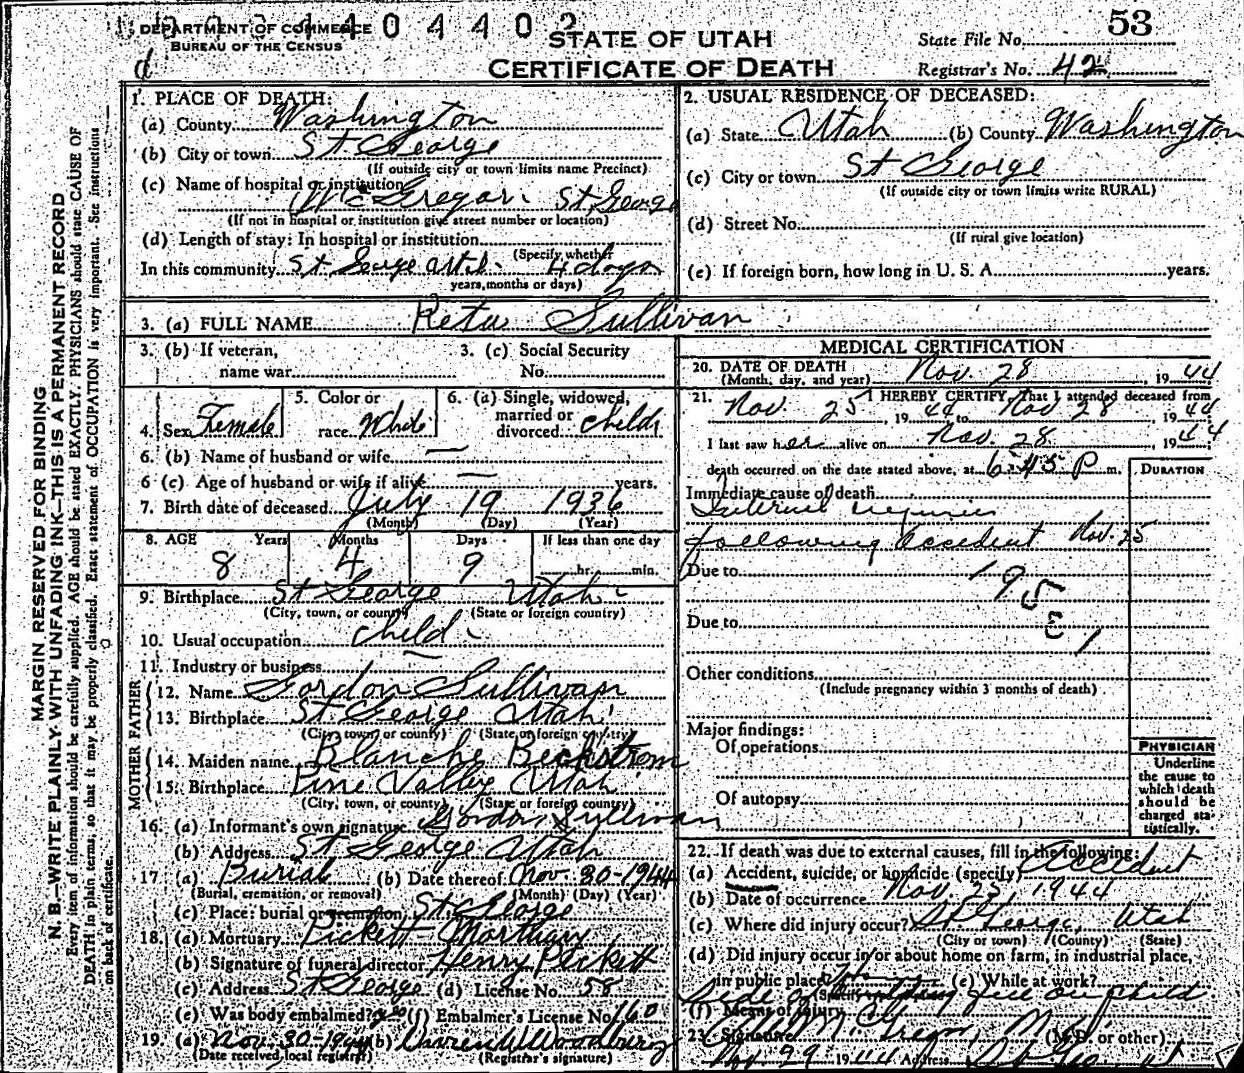 DEPARTMENT OF COMMERCE
BUREAU OF THE CENSUS
STATE OF UTAH
CERTIFICATE OF DEATH
State File No. 53
Registrar's No. 42
MARGIN RESERVED FOR BINDING
N. B.—WRITE PLAINLY WITH UNFADING INK—THIS IS A PERMANENT RECORD
Every item of information should be carefully supplied. AGE should be stated EXACTLY. PHYSICIANS should state CAUSE OF
DEATH in plain terms, so that it may be properly classified. Exact statement of OCCUPATION is very important. See instructions
on back of certificate.
1. PLACE OF DEATH:
(a) County Washington
(b) City or town St George
(If outside city or town limits name Precinct)
(c) Name of hospital or institution
McGregor St George
(If not in hospital or institution give street number or location)
(d) Length of stay: In hospital or institution
(Specify whether
In this community St George Utah 4 days
years, months or days)
2. USUAL RESIDENCE OF DECEASED:
(a) State Utah (b) County Washington
(c) City or town St George
(If outside city or town limits write RURAL)
(d) Street No.
(If rural give location)
(e) If foreign born, how long in U. S. A. years.
3. (a) FULL NAME Sullivan
3. (b) If veteran,
name war
3. (c) Social Security
No.
4. Sex Female
5. Color or
race White
6. (a) Single, widowed,
married or
divorced child
6. (b) Name of husband or wife —
6 (c) Age of husband or wife if alive — years.
7. Birth date of deceased July 19 1936
(Month) (Day) (Year)
8. AGE Years Months Days If less than one day
8 4 9 hr. min.
9. Birthplace St George Utah
(City, town, or county) (State or foreign country)
10. Usual occupation child
11. Industry or business
FATHER
12. Name Gordon Sullivan
13. Birthplace St. George Utah
(City, town, or county) (State or foreign country)
MOTHER
14. Maiden name Blanche Beckstrom
15. Birthplace Pine Valley Utah
(City, town, or county) (State or foreign country)
16. (a) Informant's own signature Gordon Sullivan
(b) Address St George Utah
17 (a) Burial (b) Date thereof Nov. 30-1944
(Burial, cremation, or removal) (Month) (Day) (Year)
(c) Place: burial or cremation St George
18. (a) Mortuary Pickett Mortuary
(b) Signature of funeral director Henry Pickett
(c) Address St George (d) License No. 58
(e) Was body embalmed? (f) Embalmer's License No. 160
19. (a) Nov. 30-1944 (b) Woodbury
(Date received local registrar) (Registrar's signature)
MEDICAL CERTIFICATION
20. DATE OF DEATH
(Month, day, and year) Nov. 28, 1944
21. I HEREBY CERTIFY, That I attended deceased from
Nov. 25, 1944 to Nov 28 1944
I last saw her alive on Nov. 28 1944
death occurred on the date stated above, at 6:45 P m.
DURATION
Immediate cause of death
Internal injuries
following accident Nov. 25
Due to
195
Due to
Other conditions
(Include pregnancy within 3 months of death)
Major findings:
Of operations
Of autopsy
PHYSICIAN
Underline
the cause to
which death
should be
charged sta-
tistically.
22. If death was due to external causes, fill in the following:
(a) Accident, suicide, or homicide (specify) Accident
(b) Date of occurrence Nov. 25, 1944
(c) Where did injury occur? St. George, Utah
(City or town) (County) (State)
(d) Did injury occur in or about home on farm, in industrial place,
in public place? (e) While at work?
Side of fell on child
(f) Means of injury
23. Signature McGregor M.D. (M.D. or other)
Nov 29 1944 Address St Geo. Ut